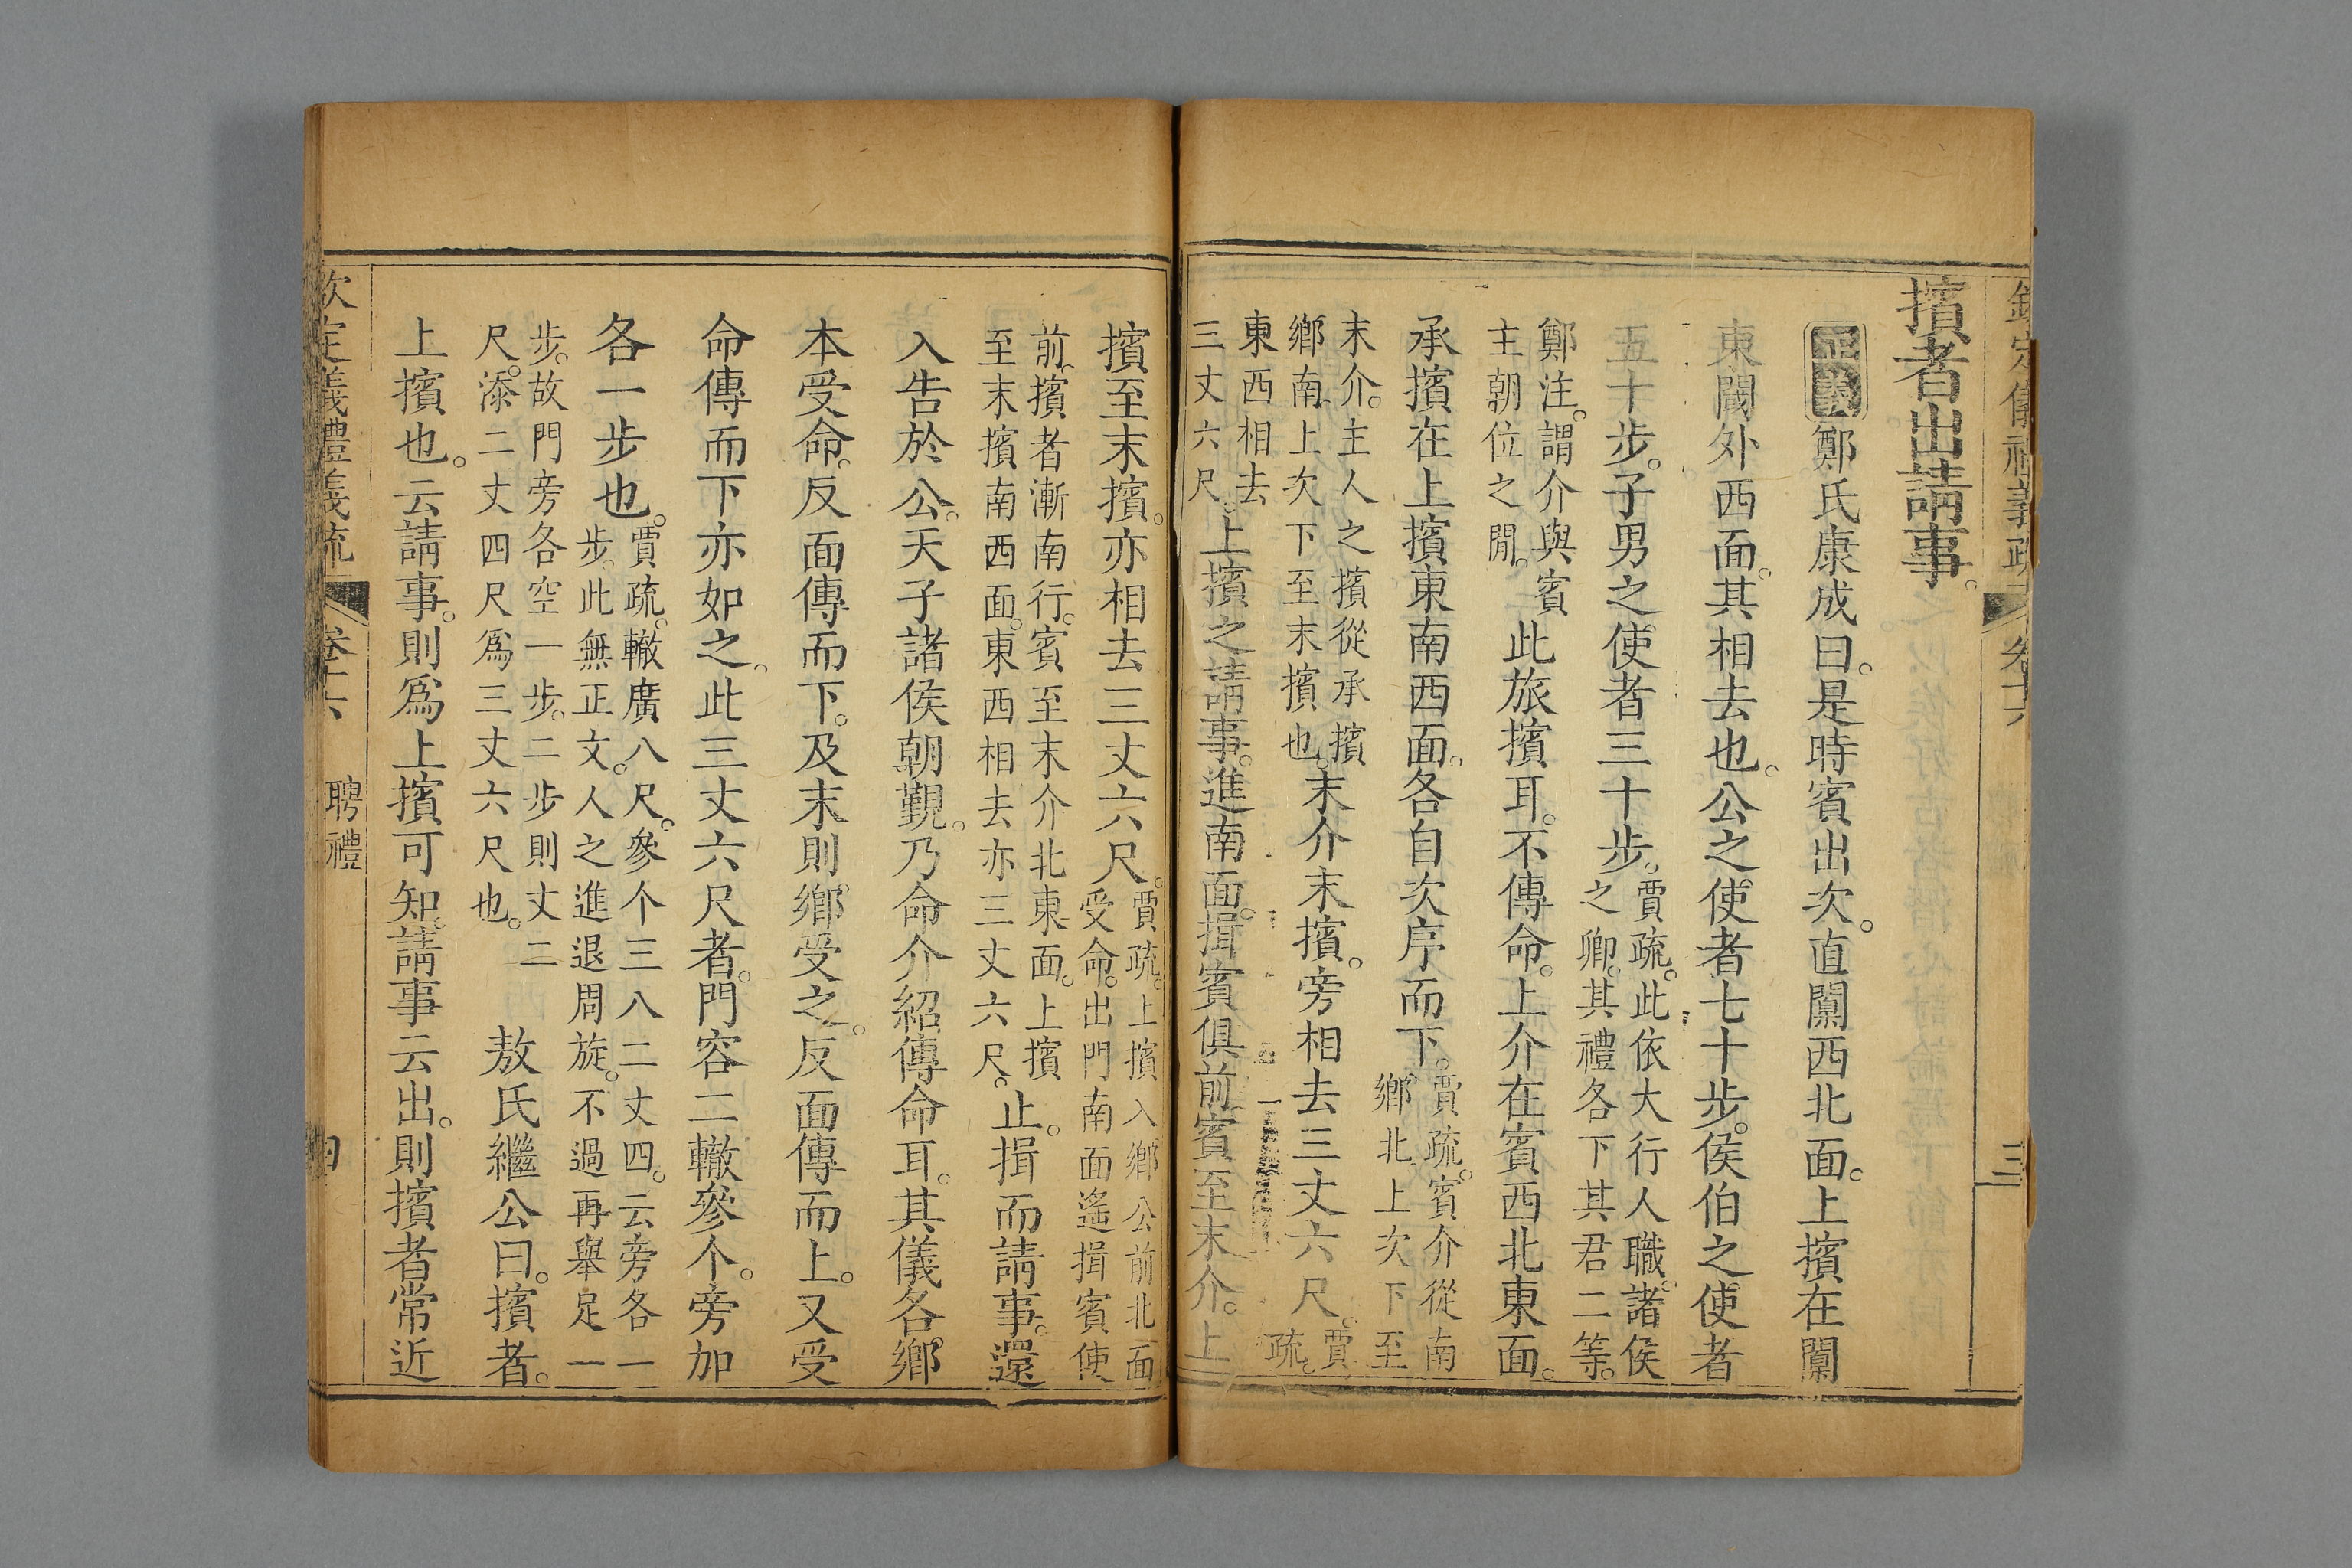 欽定儀禮義疏 卷十六 三
擯者出請事。
正義鄭氏康成曰。是時賓出次。直闑西北面。上擯在闑
東閾外西面。其相去也。公之使者七十步。侯伯之使者
五十步。子男之使者三十步。賈疏。此依大行人職。諸侯
之卿。其禮各下其君二等。
鄭注。謂介與賓
主朝位之閒。此旅擯耳。不傳命。上介在賓西北東面。
承擯在上擯東南西面。各自次序而下。賈疏。賓介從南
鄉北。上次下至
末介。主人之擯從承擯
鄉南。上次下至末擯也。末介末擯。旁相去三丈六尺。賈
疏。
東西相去
三丈六尺。上擯之請事。進南面。揖賓俱前。賓至末介。上
擯至末擯。亦相去三丈六尺。賈疏。上擯入鄉公前北面
受命。出門南面遙揖賓使
前。擯者漸南行。賓至末介北東面。上擯
至末擯南西面。東西相去亦三丈六尺。止揖而請事。還
入告於公。天子諸侯朝覲。乃命介紹傳命耳。其儀各鄉
本受命。反面傳而下。及末則鄉受之。反面傳而上。又受
命傳而下亦如之。此三丈六尺者。門容二轍參个。旁加
各一步也。賈疏。轍廣八尺。參个三八二丈四。云旁各一
步。此無正文。人之進退周旋。不過再舉足一
步。故門旁各空一步。二步則丈二
尺。添二丈四尺爲三丈六尺也。敖氏繼公曰。擯者。
上擯也。云請事。則爲上擯可知。請事云出。則擯者常近
欽定儀禮義疏 卷十六 聘禮 四